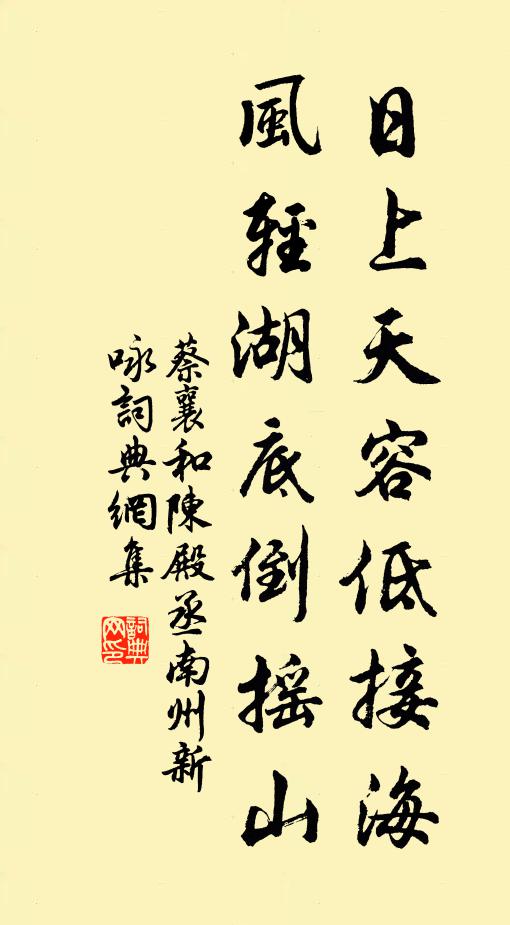 日上天容低接海
風輕湖底倒摇山
蔡襄和陳殿丞南州新
咏詞典網集
詞典
网印